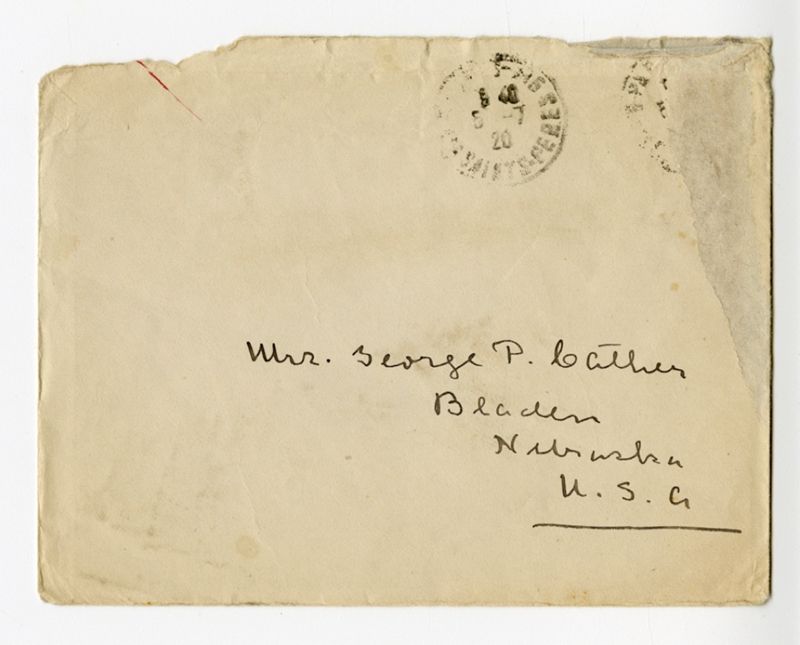 8 40
5 -7
20
STS-PERES
Mrs. George P. Cather
Bladen
Nebraska
U. S. A